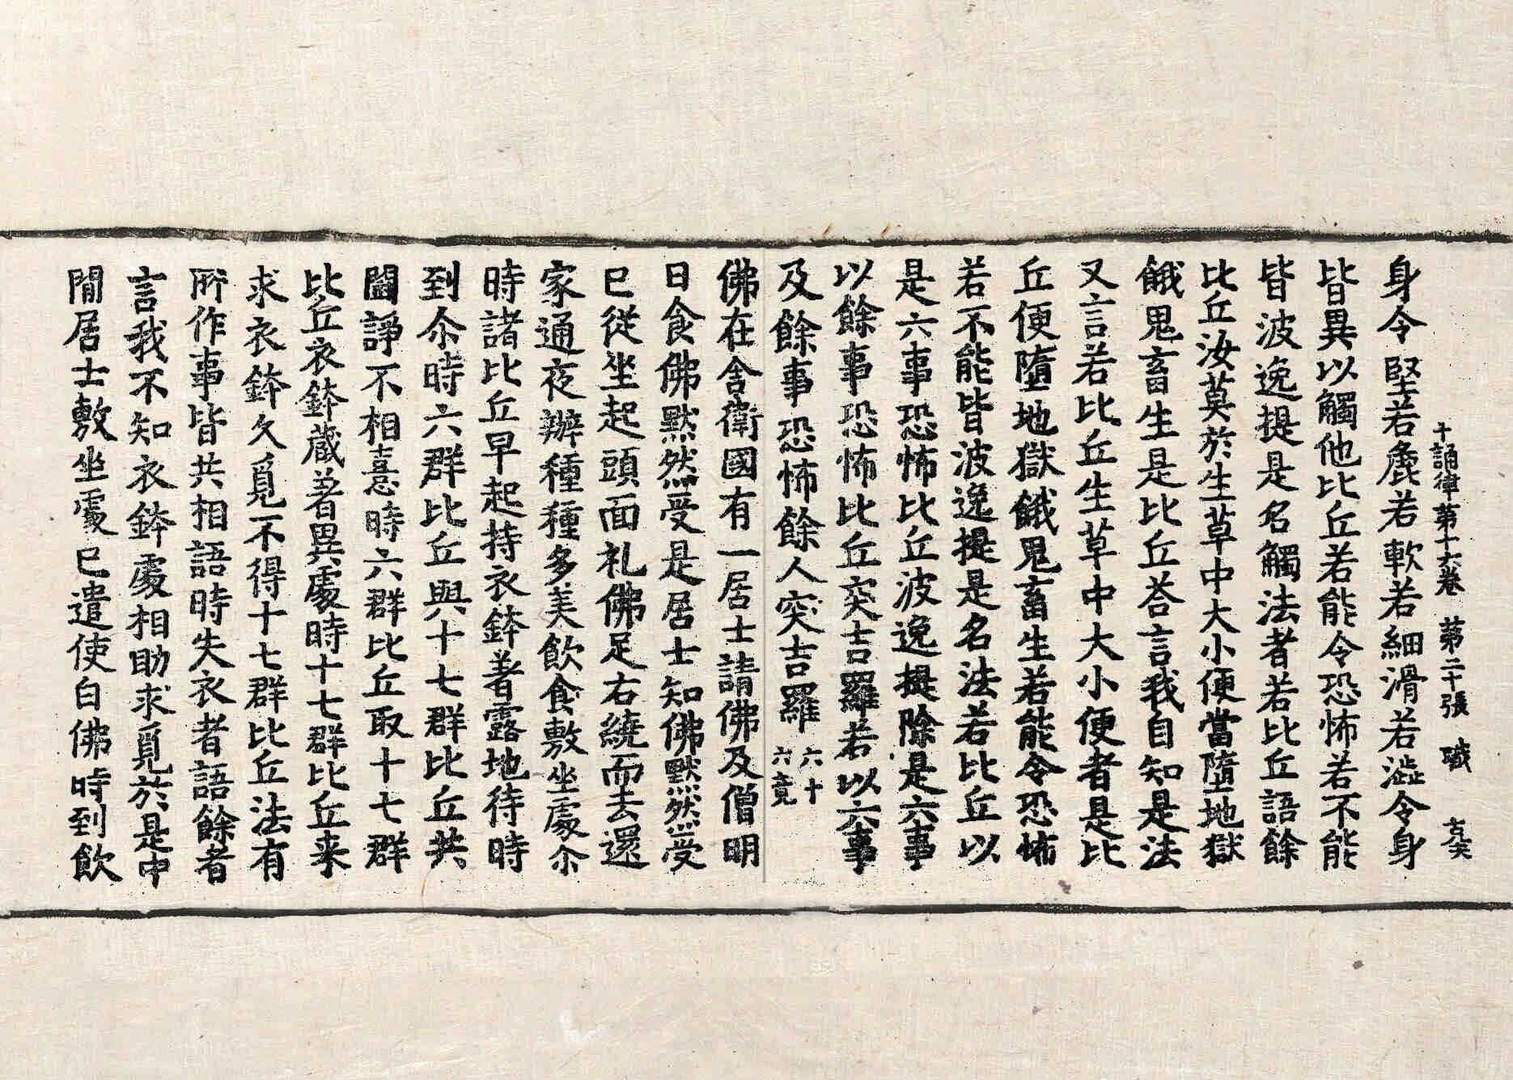 十誦律第十六卷 第二十張 職
身令堅若麁若軟若細滑若澁令身
皆異以觸他比丘若能令恐怖若不能
皆波逸提是名觸法者若比丘語餘
比丘汝莫於生草中大小便當墮地獄
餓鬼畜生是比丘荅言我自知是法
又言若比丘生草中大小便者是比
丘便墮地獄餓鬼畜生若能令恐怖
若不能皆波逸提是名法若比丘以
是六事恐怖比丘波逸提除是六事
以餘事恐怖比丘突吉羅若以六事
及餘事恐怖餘人突吉羅六十六竟
佛在舍衛國有一居士請佛及僧明
日食佛默然受是居士知佛默然受
已從坐起頭面礼佛足右繞而去還
家通夜辦種種多美飲食敷坐處尒
時諸比丘早起持衣鉢著露地待時
到尒時六群比丘與十七群比丘共
鬪諍不相憙時六群比丘取十七群
比丘衣鉢藏著異處時十七群比丘来
求衣鉢久覓不得十七群比丘法有
所作事皆共相語時失衣者語餘者
言我不知衣鉢處相助求覓於是中
閒居士敷坐處已遣使白佛時到飲